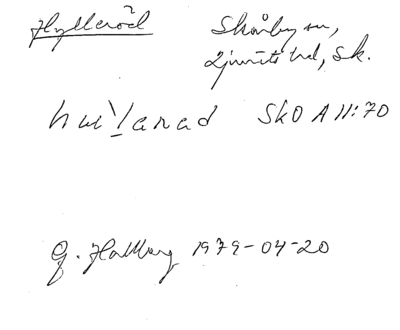 Hylleröd Skånby sn,
Ljunits hd, Sk.
SkO A 11:70
G. Hallberg 1979-04-20